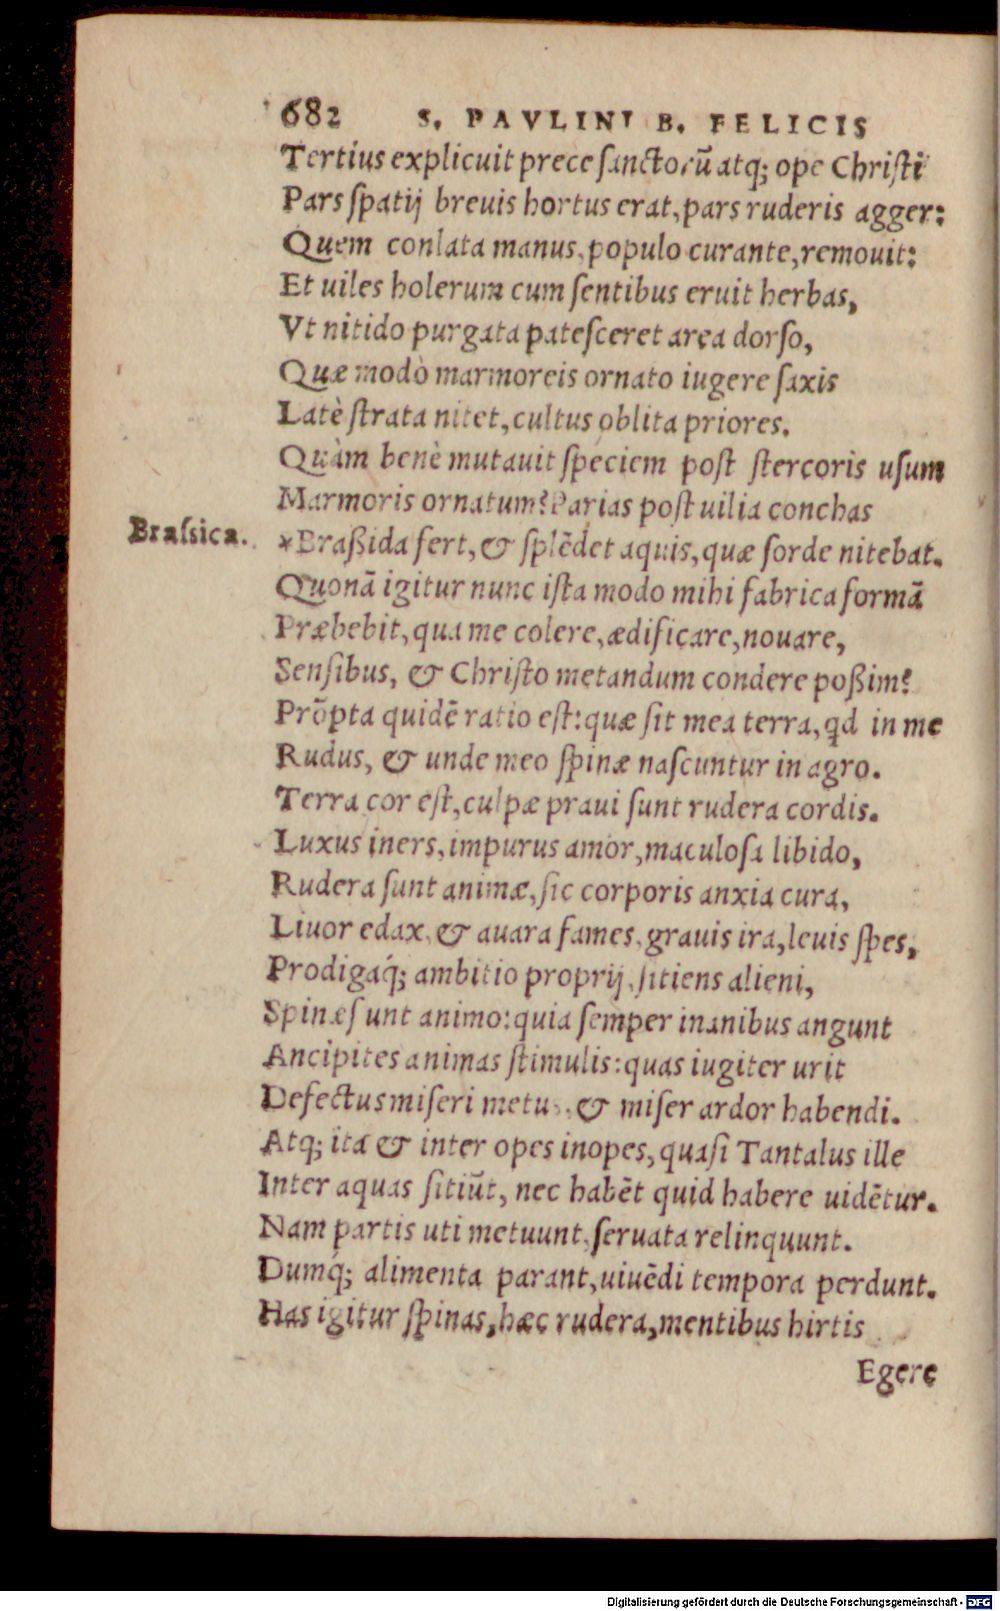 682 S. PAVLINI B. FELICIS
Tertius explicuit prece sanctorũ atq; ope Christi
Pars spatij breuis hortus erat, pars ruderis agger:
Quem conlata manus, populo curante, remouit:
Et uiles holerum cum sentibus eruit herbas,
Vt nitido purgata patesceret area dorso,
Quæ modò marmoreis ornato iugere saxis
Latè strata nitet, cultus oblita priores.
Quàm benè mutauit speciem post stercoris usum
Marmoris ornatum? Parias post uilia conchas
Brassica. *Braßida fert, & splēdet aquis, quæ sorde nitebat.
Quonā igitur nunc ista modo mihi fabrica formā
Præbebit, qua me colere, ædificare, nouare,
Sensibus, & Christo metandum condere poßim?
Prōpta quidē ratio est: quæ sit mea terra, qd in me
Rudus, & unde meo spinæ nascuntur in agro.
Terra cor est, culpæ praui sunt rudera cordis.
Luxus iners, impurus amor, maculosa libido,
Rudera sunt animæ, sic corporis anxia cura,
Liuor edax, & auara fames, grauis ira, leuis spes,
Prodigaq́; ambitio proprij, sitiens alieni,
Spinæs unt animo: quia semper inanibus angunt
Ancipites animas stimulis: quas iugiter urit
Defectus miseri metus, & miser ardor habendi.
Atq; ita & inter opes inopes, quasi Tantalus ille
Inter aquas sitiũt, nec habēt quid habere uidētur.
Nam partis uti metuunt, seruata relinquunt.
Dumq́; alimenta parant, uiuēdi tempora perdunt.
Has igitur spinas, hæc rudera, mentibus hirtis
Egere
Digitalisierung gefördert durch die Deutsche Forschungsgemeinschaft - DFG